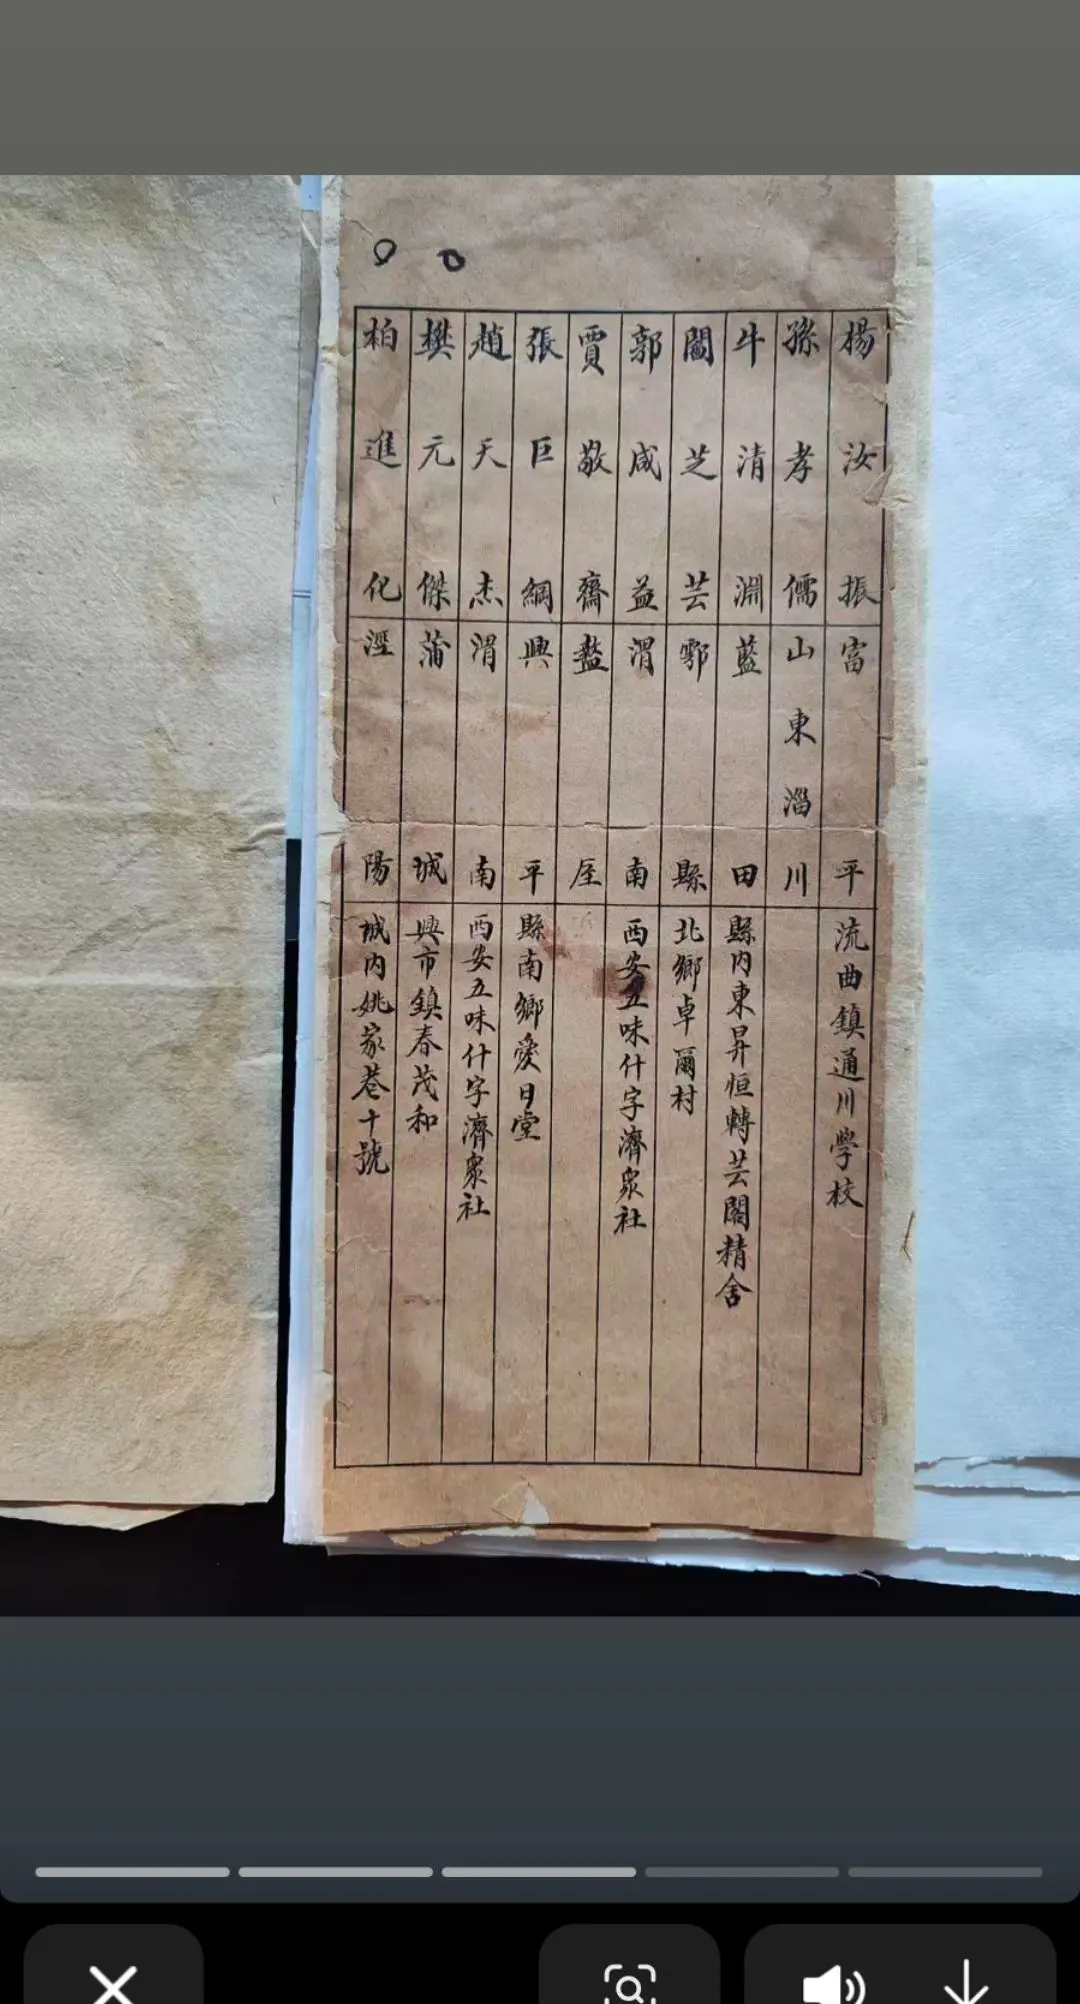 楊汝振富平流曲鎮通川學校
孫孝儒山東淄川
牛清淵藍田縣內東昇恒轉芸閣精舍
閻芝芸鄠縣北鄉卓爾村
郭咸益渭南西安五味什字濟眾社
賈敬齋盩厔
張巨綱興平縣南鄉愛日堂
趙天杰渭南西安五味什字濟眾社
樊元傑蒲城興市鎮春茂和
柏進化涇陽城內姚家巷十號